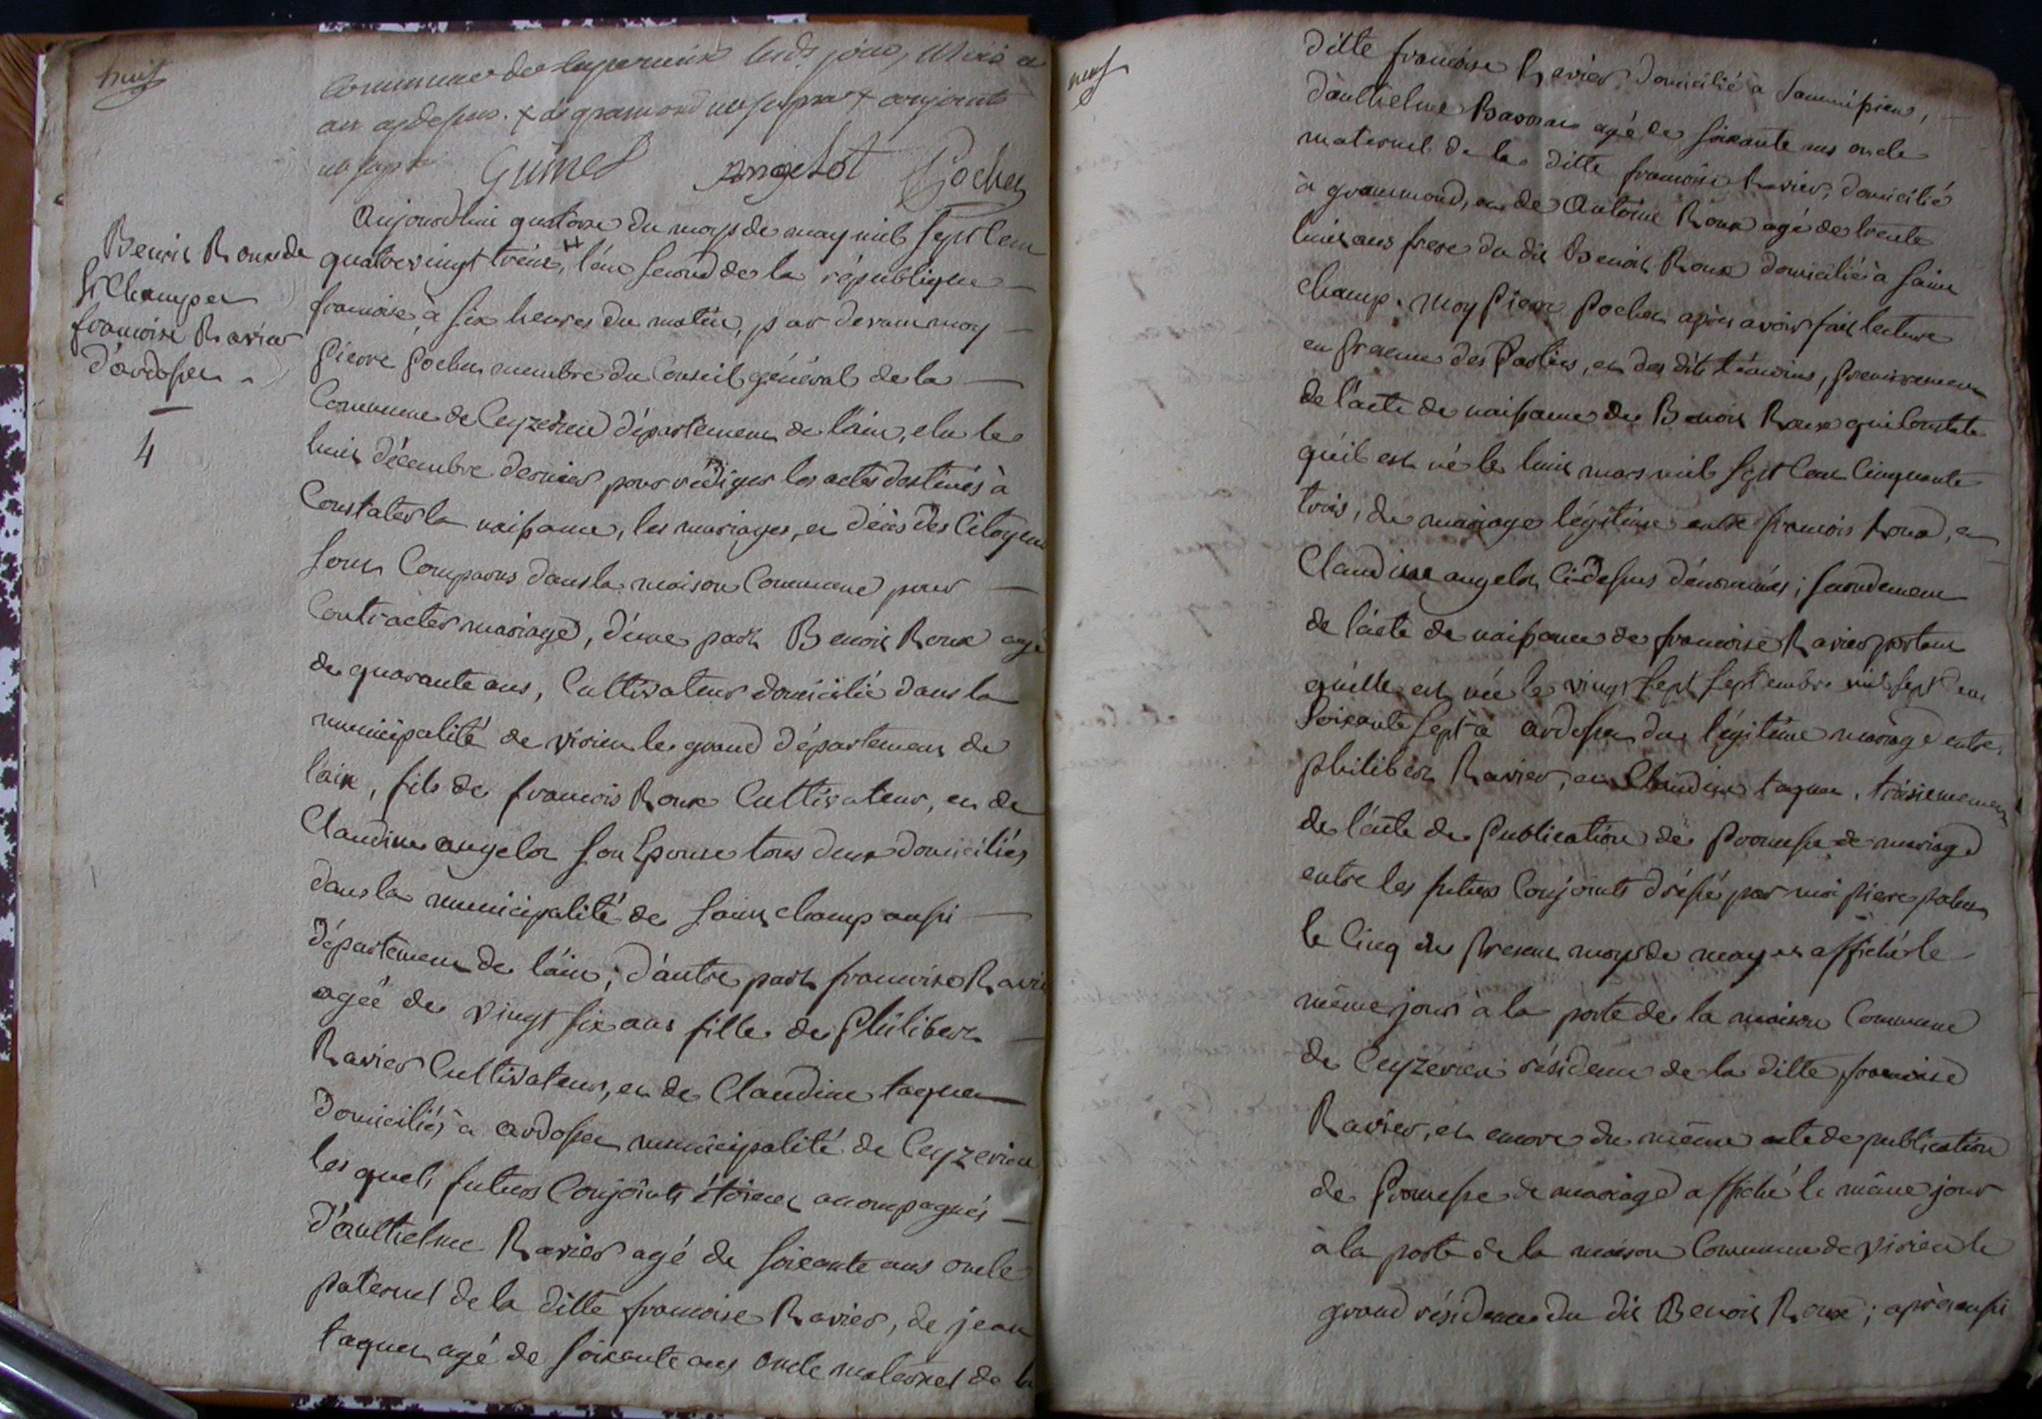 huit
Commune de Ceyzerieu lesdits jour, mois et
an cy dessus. + de grammond +
Guinet Angelot Pochet
Benoit Roux de
St Champ et
francoise Ravier
d'ardosset
4
Aujourdhui quatorze du mois de may mil sept cent
quatrevingt treize, l'an second de la république
francoise, à six heures du matin, par devant moy
Pierre Pochet membre du Conseil général de la
Commune de Ceyzerieu département de l'ain, elu le
huit décembre dernier pour rédiger les actes destinés à
Constater la naissance, les mariages, et décès des Citoyens
sont Comparus dans la maison Commune pour
Contracter mariage, d'une part Benoit Roux agé
de quarante ans, Cultivateur domicilié dans la
municipalité de virieu le grand département de
l'ain, fils de francois Roux Cultivateur, et de
Claudine angelot son Epouse tous deux domiciliés
dans la municipalité de Saint champ aussi
département de l'ain; d'autre part francoise Ravier
agée de vingt six ans fille de Philibert
Ravier Cultivateur, et de Claudine taquet
domiciliés à ardosset municipalité de Ceyzerieu
les quels futurs Conjoints étoient acompagnés
d'anthelme Ravier agé de soixante ans oncle
paternel de la ditte francoise Ravier, de jean
taquet agé de soixante ans oncle maternel de la
neuf
ditte francoise Ravier domicilié à
d'anthelme agé de soixante ans oncle
maternel de la ditte francoise Ravier, domicilié
à grammond, et de Antoine Roux agé de trente
huit ans frere du dit Benoit Roux domicilié à Saint
champ. moy Pierre Pochet après avoir fait lecture
en presence des Parties, et des dits témoins, premierement
de l'acte de naissance de Benoit Roux qui Constate
qu'il est né le huit mars mil sept cent Cinquante
trois, du mariage légitime entre francois Roux, et
Claudine angelot Ci dessus dénommés; secondement
de l'acte de naissance de francoise Ravier portant
qu'elle est née le vingt sept septembre mil sept cent
soixante sept à ardosset du légitime mariage entre
philibert Ravier, et Claudine taquet. troisiemement
de l'acte de Publication de Promesse de mariage
entre les futurs Conjoints dréssé par moi pierre pochet
le Cinq du présent moys de may et affiché le
même jour à la porte de la maison Commune
de Ceyzerieu résidence de la ditte francoise
Ravier, et encore du même acte de publication
de Promesse de mariage affiché le même jour
à la porte de la maison Commune de virieu le
grand résidence du dit Benoit Roux; après aussi